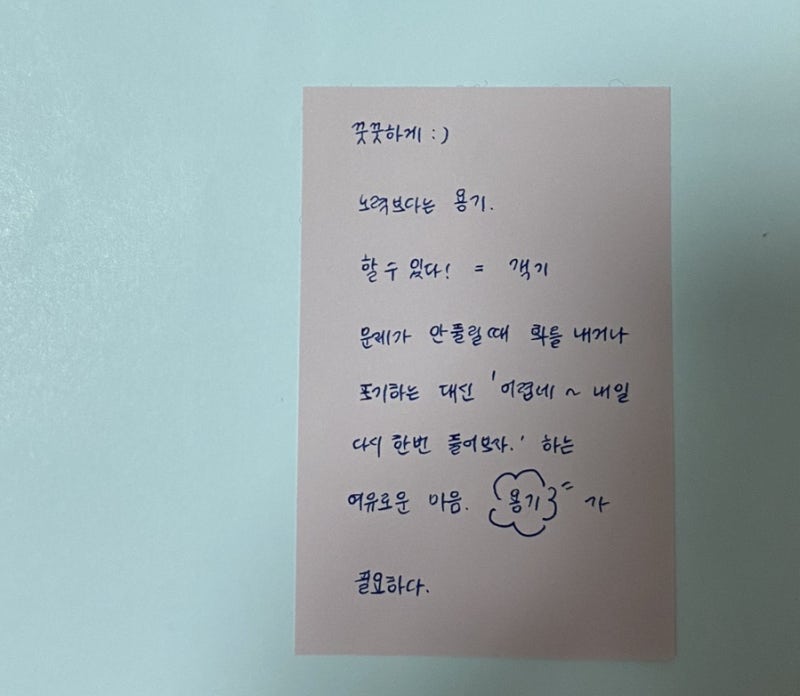 꿋꿋하게 :)
노력보다는 용기.
할 수 있다! = 객기
문제가 안풀릴때 화를 내거나
포기하는 대신 '어렵네 ~ 내일
다시 한번 풀어보자.' 하는
여유로운 마음. 용기 가
필요하다.